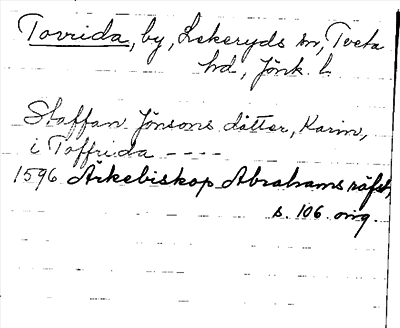 Tovrida, by, Lekeryds sn, Tveta
hd, Jönk. l.
Staffan Jönsons dåtter, Karin,
i Toffrida ----
1596 Ärkebiskop Abrahams räfst,
s. 106. omg.